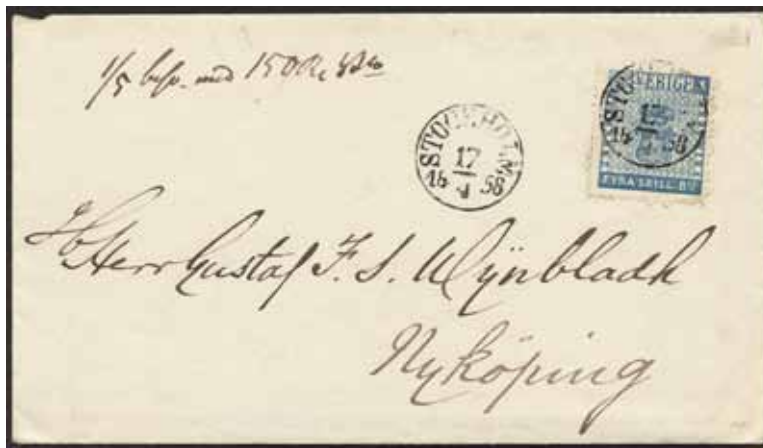 1/5 besv. med 150 Rr Bco
STOCKHOLM
17
4
18 58
SVERIGE
STOCKHOLM
17
18 58
FYRA SKILL. BCO
Herr Gustaf F. S. Wijnbladh
Nyköping